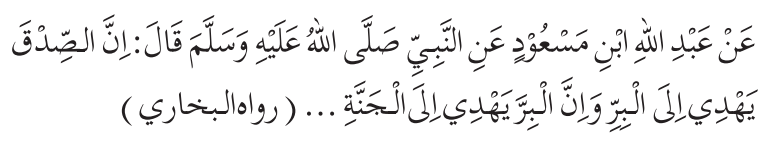 عَنْ عَبْدِ اللهِ ابْنِ مَسْعُوْدٍ عَنِ النَّبِيِّ صَلَّى اللهُ عَلَيْهِ وَسَلَّمَ قَالَ: اِنَّ الصِّدْقَ
يَهْدِي اِلَى الْبِرِّ وَاِنَّ الْبِرَّ يَهْدِي اِلَى الْجَنَّةِ ... ( رواه البخاري )